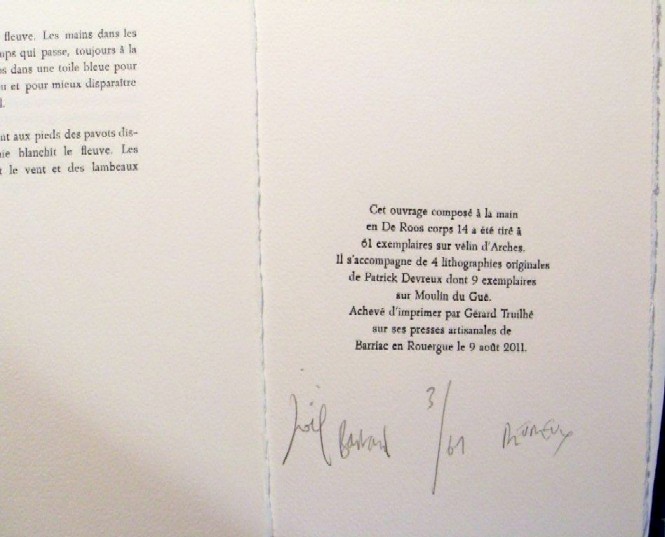 fleuve. Les mains dans les
mps qui passe, toujours à la
s dans une toile bleue pour
u et pour mieux disparaître
l.
nt aux pieds des pavots dis-
ie blanchit le fleuve. Les
t le vent et des lambeaux
Cet ouvrage composé à la main
en De Roos corps 14 a été tiré à
61 exemplaires sur vélin d'Arches.
Il s'accompagne de 4 lithographies originales
de Patrick Devreux dont 9 exemplaires
sur Moulin du Gué.
Achevé d'imprimer par Gérard Truilhé
sur ses presses artisanales de
Barriac en Rouergue le 9 août 2011.
Joël 3/61 Devreux